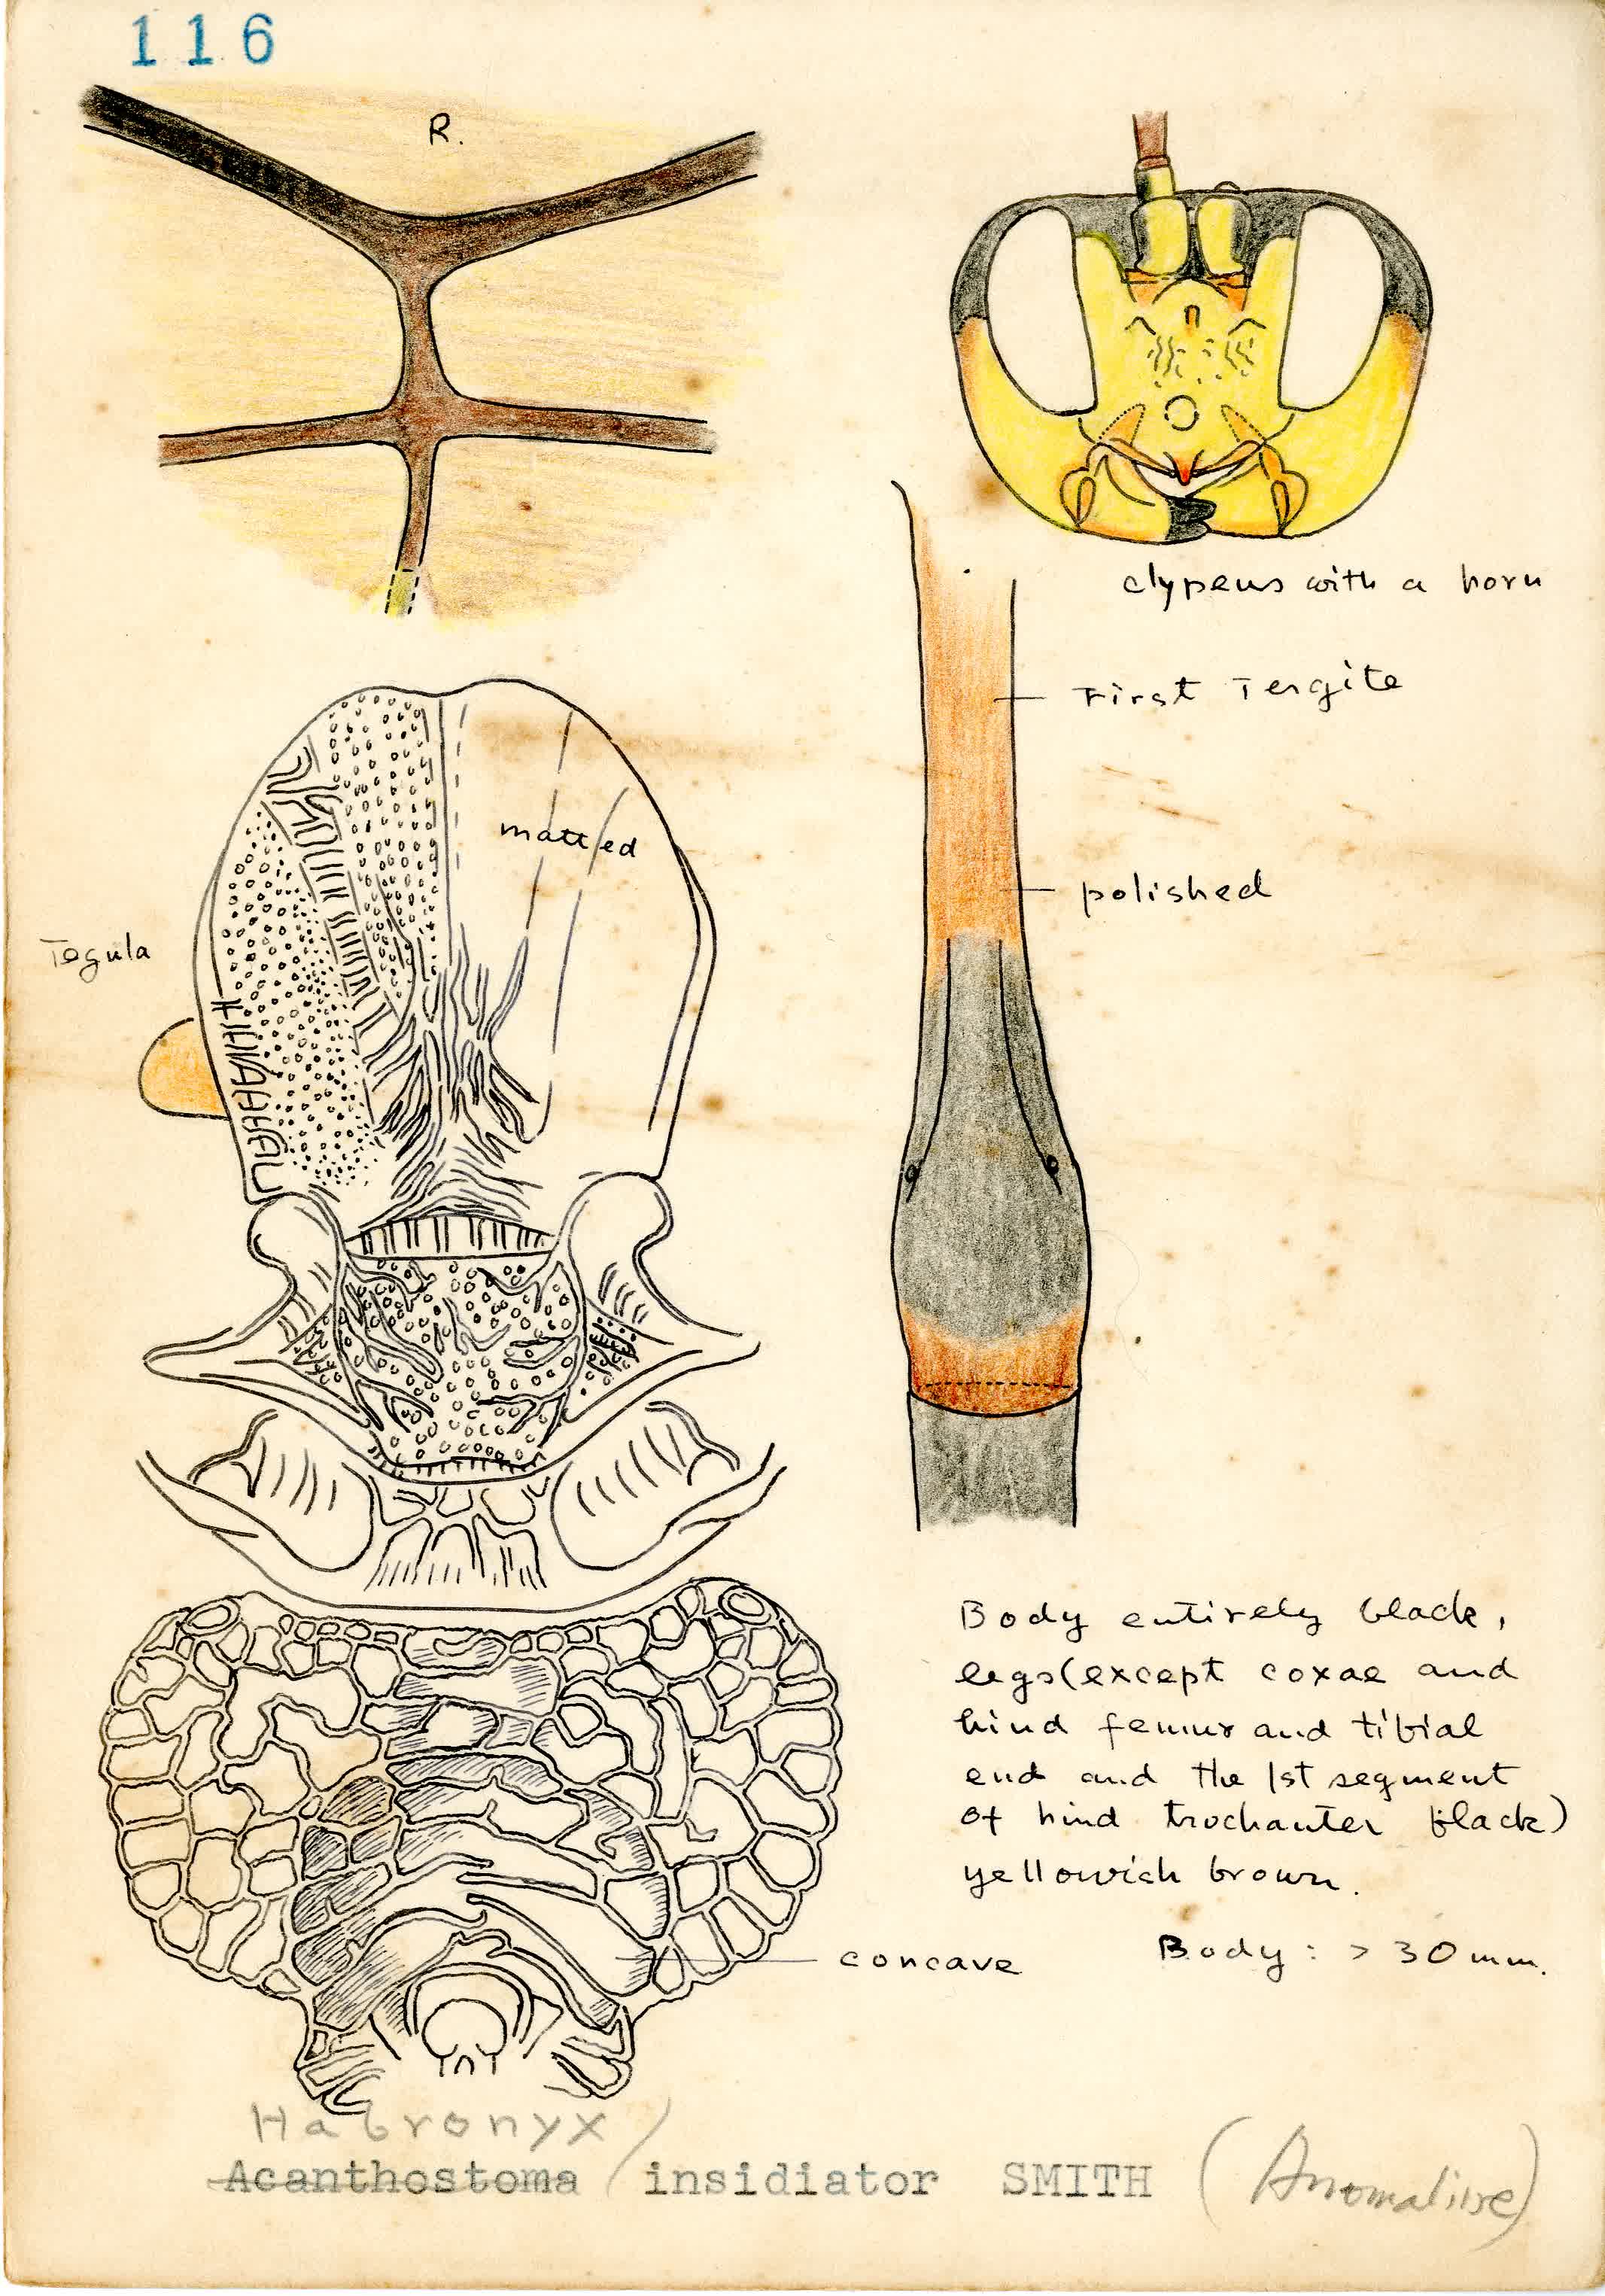 116
R.
clypeus with a horn
First Tergite
matted
polished
Tegula
Body entirely black,
legs(except coxae and
hind femur and tibial
end and the 1st segment
of hind trochanter black)
yellowish brown.
concave
Body: > 30 mm.
Habronyx /
Acanthostoma insidiator SMITH (Anomaliire)